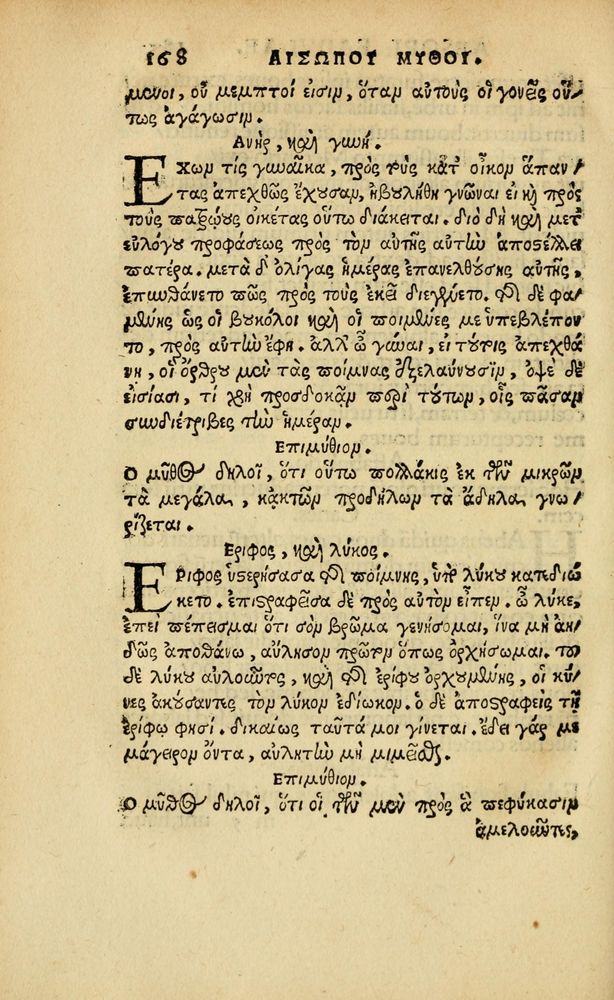 168 ΑΙΣΩΠΟΥ ΜΥΘΟΙ.
μενοι, οὐ μεμπτοί εἰσιν, ὅταν αὐτοὺς οἱ γονεῖς οὕ/
τως ἀγάγωσιν.
Ανὴρ, καὶ γυνή.
ΕΧων τίς γυναῖκα, πρὸς τοὺς κατ' οἶκον ἅπαν/
τας ἀπεχθῶς ἔχουσαν, ἠβουλήθη γνῶναι εἰ κỳ πρὸς
τοὺς παῤῥώους οἰκέτας οὕτω διάκειται. διὸ δὴ καὶ μετ'
εὐλόγου προφάσεως πρὸς τὸν αὐτῆς αὐτὴν ἀποστέλλει
πατέρα. μετὰ δ' ὀλίγας ἡμέρας ἐπανελθούσης αὐτῆς,
ἐπυνθάνετο πῶς πρὸς τοὺς ἐκεῖ διεγένετο. τῆς δὲ φα/
μένης ὡς οἱ βουκόλοι καὶ οἱ ποιμένες με ὑπεβλέπον
το, πρὸς αὐτὴν ἔφη. ἀλλ' ὦ γύναι, εἰ τούτοις ἀπεχθά/
νῃ, οἱ ὄρθρου μὲν τὰς ποίμνας ἐξελαύνουσιν, ὀψὲ δὲ
εἰσίασι, τί χρὴ προσδοκᾶν περὶ τούτων, οἷς πᾶσαν
συνδιέτριβες τὴν ἡμέραν.
Επιμύθιον.
Ο μῦθος δηλοῖ, ὅτι οὕτω πολλάκις ἐκ τῶν μικρῶν
τὰ μεγάλα, κἀκ τῶν προδήλων τὰ ἄδηλα γνω/
ρίζεται.
Εριφος, καὶ λύκος.
ΕΡιφος ὑστερήσασα τῆς ποίμνης, ὑπὸ λύκου κατεδιώ
κετο. ἐπιστραφεῖσα δὲ πρὸς αὐτὸν εἶπεν. ὦ λύκε,
ἐπεὶ πέπεισμαι ὅτι σὸν βρῶμα γενήσομαι, ἵνα μὴ ἀη/
δῶς ἀποθάνω, αὔλησον πρῶτον ὅπως ὀρχήσωμαι. τοῦ
δὲ λύκου αὐλοῦντος, καὶ τῆς ἐρίφου ὀρχουμένης, οἱ κύ/
νες ἀκούσαντες τὸν λύκον ἐδίωκον. ὁ δὲ ἀποστραφεὶς τῇ
ἐρίφῳ φησί. δικαίως ταῦτά μοι γίνεται. ἔδει γάρ με
μάγειρον ὄντα, αὐλητὴν μὴ μιμεῖσθαι.
Επιμύθιον.
Ο μῦθος δηλοῖ, ὅτι οἱ τῶν μὲν πρὸς ἃ πεφύκασιν
ἀμελοῦντες,